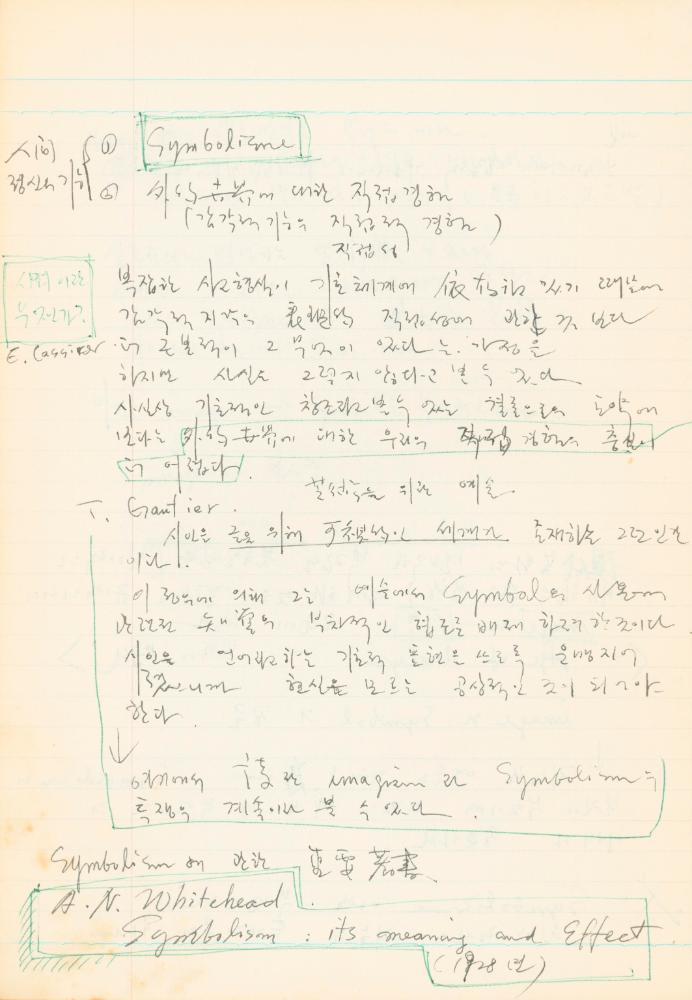 Symbolisme
人間 정신의 기능 ① ②
外的 世界에 대한 직접경험
(감각적 기능의 직접적 경험)
직접성
사회이란 무엇인가?
E. Cassirer
복잡한 사고형식이 기호체계에 依存하고 있기 때문에
감각적 지각의 직접성에 반한 것 보다
더 근본적이 그 무엇이 있다는 가정을
하지만 사실은 그렇지 않다고 볼 수 있다
사실상 기호적인 창조라고 볼 수 있는 결론으로의 도약에
보다는 外的 世界에 대한 우리의 직접 경험의
더 어렵다.
T. Gautier.
위한 예술.
시인은 그를 위해 可視的인 세계가 존재하는 그런 인간
이다.
이 정의에 의해 그는 예술에서 Symbol의
관련된 부차적인 협로를 배제 하려 한 것이다
시인은 언어라고 하는 기호적 표현을 쓰도록 운명지어
졌으니까 현실을 모르는 공상적인 것이 되어야
한다.
여기에서 imagism과 Symbolism의
투쟁의 계속이라 볼 수 있다.
Symbolism에 관한 重要 著書
A. N. Whitehead.
Symbolism : its meaning and Effect
(1928년)